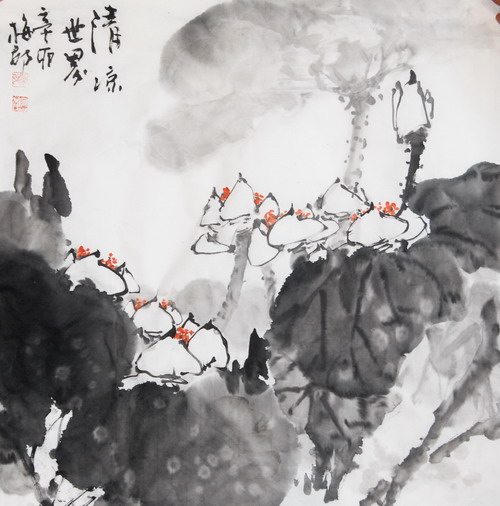 清凉
世界
辛卯
梅